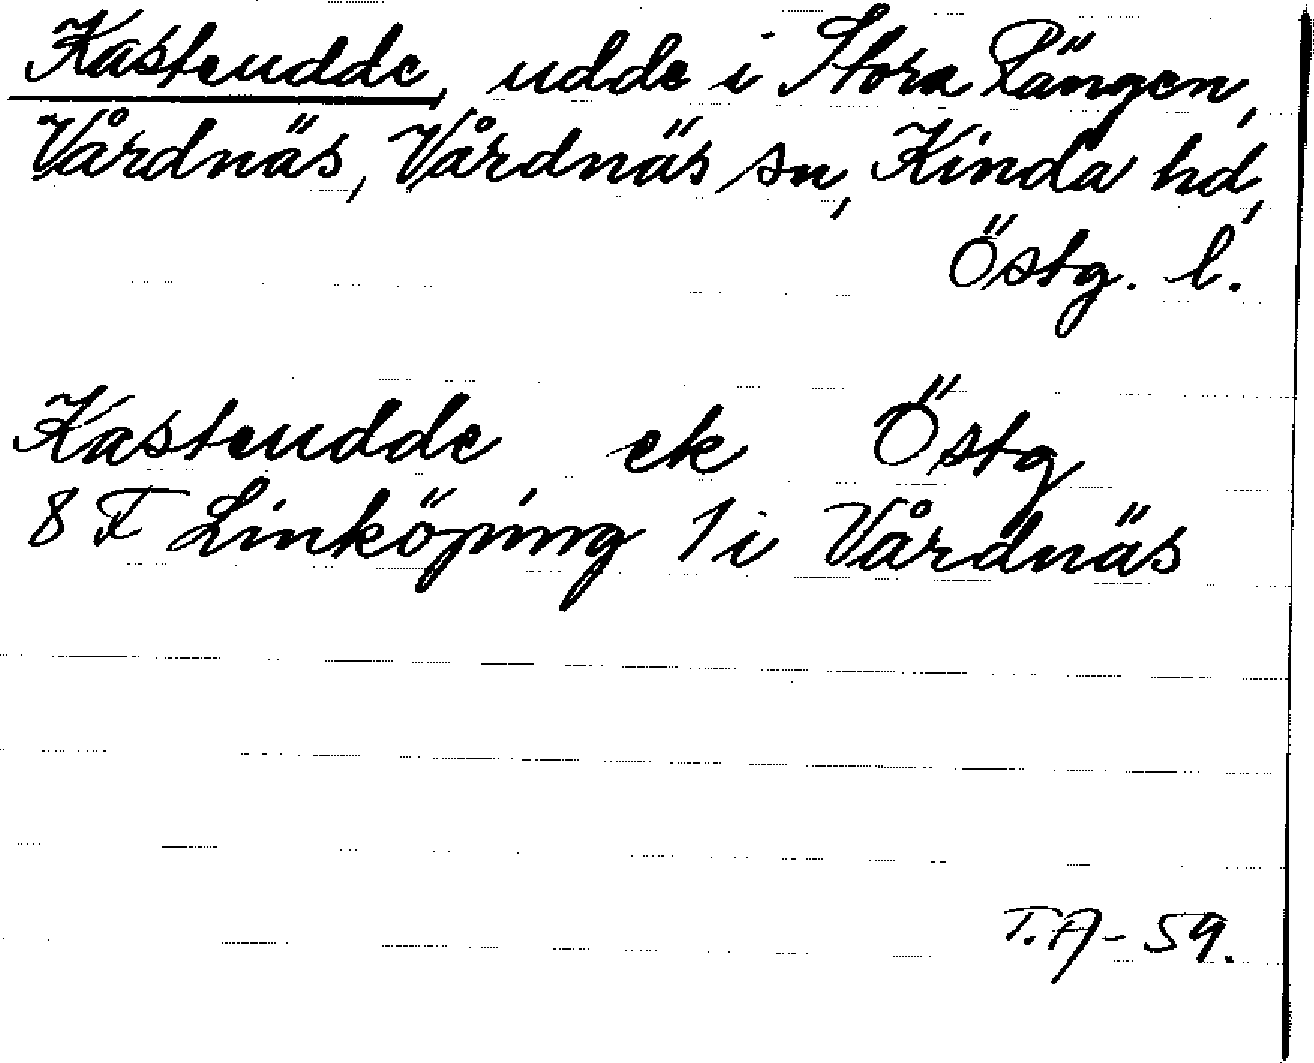 Kasteudde, udde i Stora Rängen,
Vårdnäs, Vårdnäs sn, Kinda hd,
Östg. l.
Kasteudde ek Östg
8 F Linköping 1 i Vårdnäs
T.A-59.